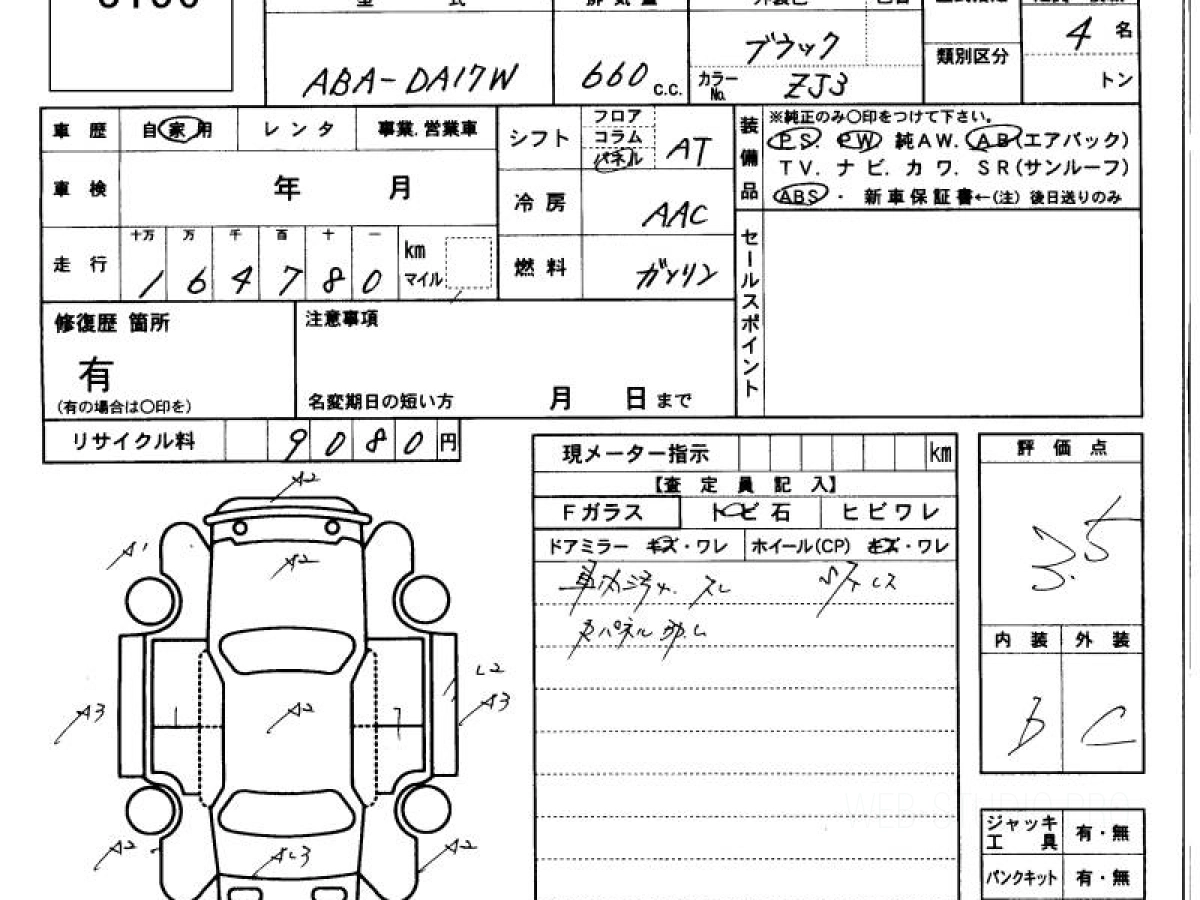 型 式
排気量
ABA-DA17W
660 c.c.
ブラック
カラーNo. ZJ3
類別区分
4 名
トン
車歴 自家用 レンタ 事業.営業車
シフト フロア コラム パネル AT
装備品
※純正のみ〇印をつけて下さい。
PS. PW 純AW. AB(エアバック)
TV. ナビ. カワ. SR(サンルーフ)
ABS・ 新車保証書←(注) 後日送りのみ
車検 年 月
冷房 AAC
セールスポイント
走行 十万 万 千 百 十 一
1 6 4 7 8 0
km
マイル
燃料 ガソリン
修復歴 箇所
有
(有の場合は〇印を)
注意事項
名変期日の短い方 月 日 まで
リサイクル料 9 0 8 0 円
現メーター指示 km
【査定員記入】
Fガラス トビ石 ヒビワレ
ドアミラー キズ・ワレ ホイール(CP) キズ・ワレ
評価点
3.5
内装 外装
B C
A2
A1
A2
L2
A3
A2
A3
A2
AL3
A2
ジャッキ
工具 有・無
パンクキット 有・無